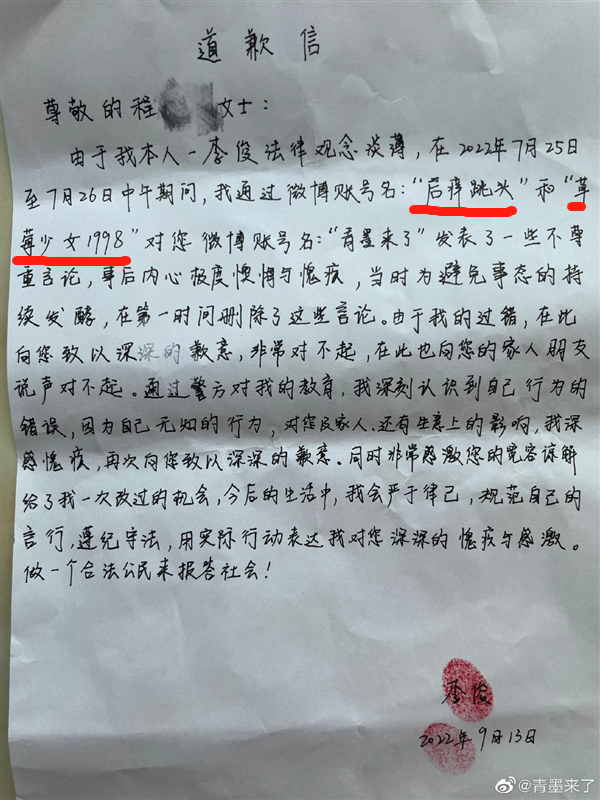 道歉信
尊敬的程 女士：
由于我本人-李俊法律观念淡薄，在2022年7月25日
至7月26日中午期间，我通过微博账号名：“后摔跳头”和“草
莓少女1998”对您微博账号名：“青墨来了”发表了一些不尊
重言论，事后内心极度懊悔与愧疚，当时为避免事态的持
续发酵，在第一时间删除了这些言论。由于我的过错，在此
向您致以深深的歉意，非常对不起，在此也向您的家人朋友
说声对不起。通过警方对我的教育，我深刻认识到自己行为的
错误，因为自己无知的行为，对您及家人、还有生意上的影响，我深
感愧疚，再次向您致以深深的歉意。同时非常感激您的宽容谅解
给了我一次改过的机会，今后的生活中，我会严于律己，规范自己的
言行，遵纪守法，用实际行动表达我对您深深的愧疚与感激。
做一个合法公民来报答社会！
李俊
2022年9月13日
@青墨来了